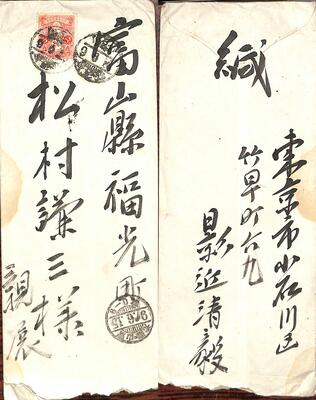 富山縣福光町
松村謙三様
親展
緘
東京市小石川区
竹早町六九
日影近清毅